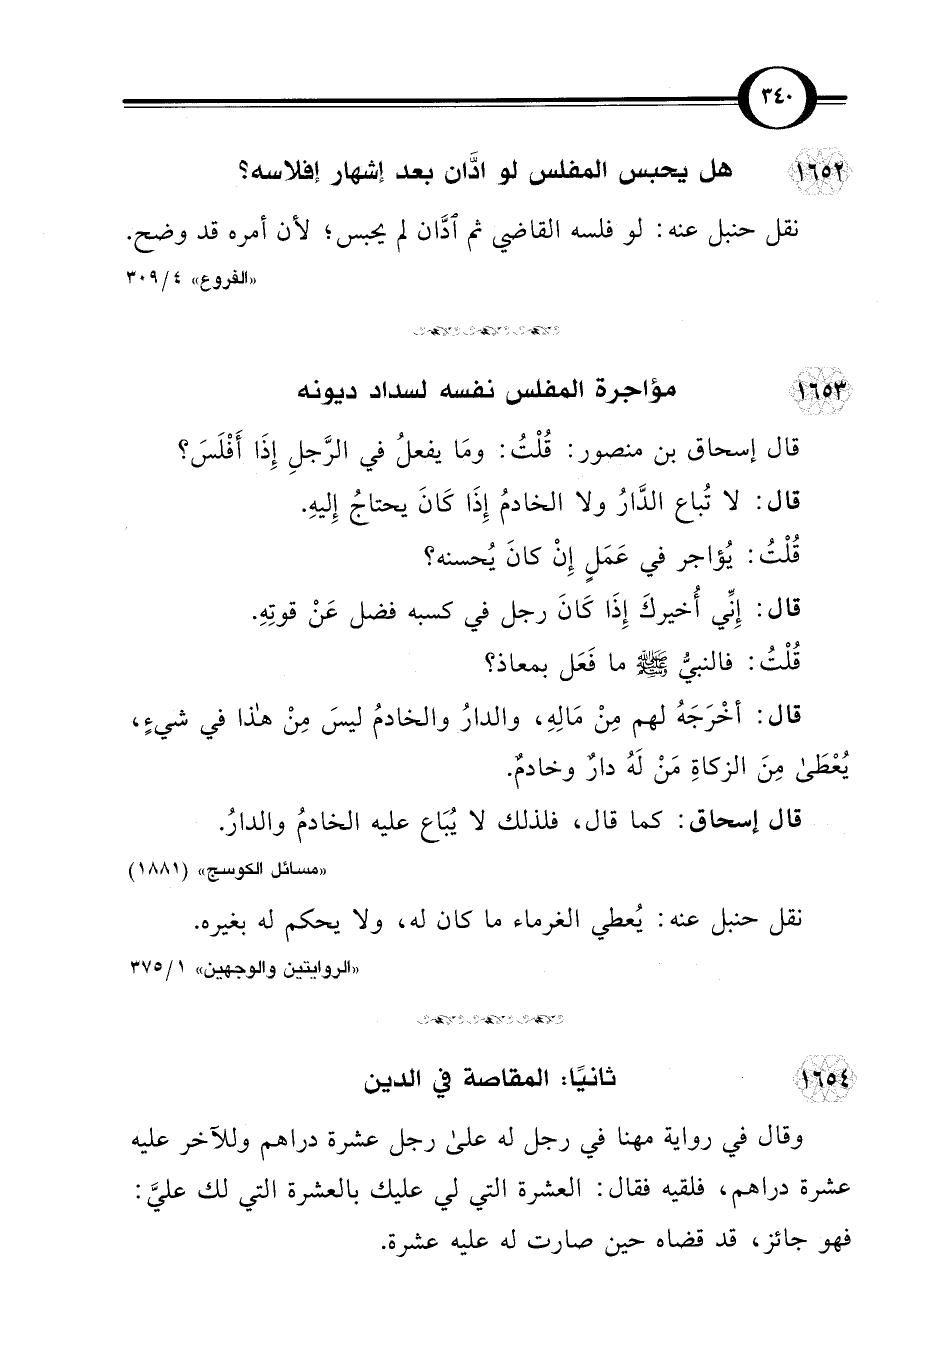 ٣٤٠
١٦٥٢ هل يحبس المفلس لو ادَّان بعد إشهار إفلاسه؟
نقل حنبل عنه: لو فلسه القاضي ثم ٱدَّان لم يحبس؛ لأن أمره قد وضح.
«الفروع» ٤/ ٣٠٩
١٦٥٣ مؤاجرة المفلس نفسه لسداد ديونه
قال إسحاق بن منصور: قُلْتُ: ومَا يفعلُ في الرَّجلِ إِذَا أَفْلَسَ؟
قال: لا تُباع الدَّارُ ولا الخادمُ إِذَا كَانَ يحتاجُ إِليهِ.
قُلْتُ: يُؤاجر في عَمَلٍ إِنْ كانَ يُحسنه؟
قال: إِنِّي أُخيركَ إِذَا كَانَ رجل في كسبه فضل عَنْ قوتِهِ.
قُلْتُ: فالنبيُّ ﷺ ما فَعَل بمعاذ؟
قال: أخْرَجَهُ لهم مِنْ مَالِهِ، والدارُ والخادمُ ليسَ مِنْ هٰذا في شيءٍ،
يُعْطَىٰ مِنَ الزكاةِ مَنْ لَهُ دارٌ وخادمٌ.
قال إسحاق: كما قال، فلذلك لا يُبَاع عليه الخادمُ والدارُ.
«مسائل الكوسج» (١٨٨١)
نقل حنبل عنه: يُعطي الغرماء ما كان له، ولا يحكم له بغيره.
«الروايتين والوجهين» ١/ ٣٧٥
١٦٥٤ ثانيًا: المقاصة في الدين
وقال في رواية مهنا في رجل له علىٰ رجل عشرة دراهم وللآخر عليه
عشرة دراهم، فلقيه فقال: العشرة التي لي عليك بالعشرة التي لك عليَّ:
فهو جائز، قد قضاه حين صارت له عليه عشرة.